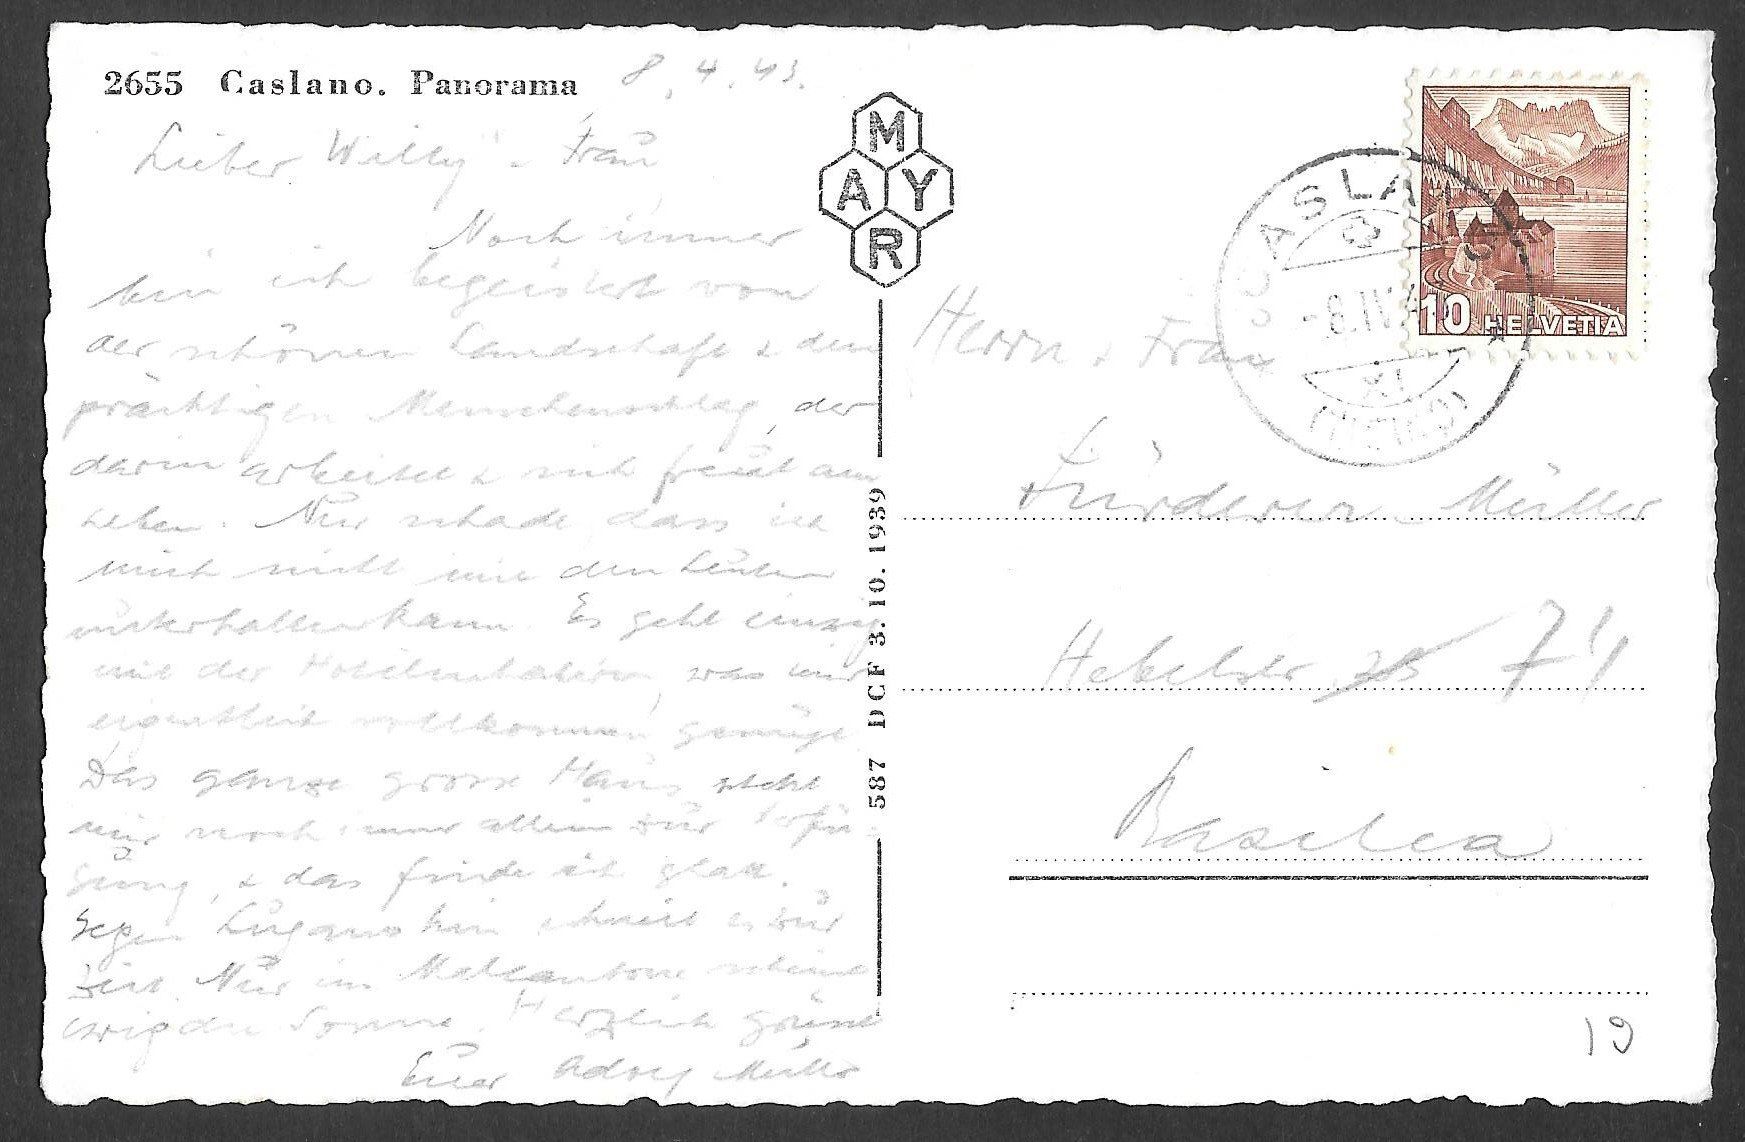 2655 Caslano. Panorama
8.4.43.
Lieber Willy & Frau
Noch immer
bin ich begeistert von
der schönen Landschaft & dem
prächtigen Menschenschlag, der
darin arbeitet & sich freut am
Leben. Nur schade dass ich
mich nicht mit den Leuten
unterhalten kann. Es geht einzig
mit der, was mir
eigentlich vollkommen genügt.
Das ganze grosse Haus steht
mir noch immer allein zur Verfü-
gung, & das finde ich glatt.
Gegen Lugano hin schneit es zur
Zeit. Nur im Malcantone scheint
ewig die Sonne. Herzlich grüsst
Euer Adolf Müller
MAYR
587 DCF 3. 10. 1939
10 HELVETIA
CASLANO
-8.IV.
XI
(TICINO)
Herrn & Frau
Fürderer-Müller
Hebelstr. 71
Basilea
19